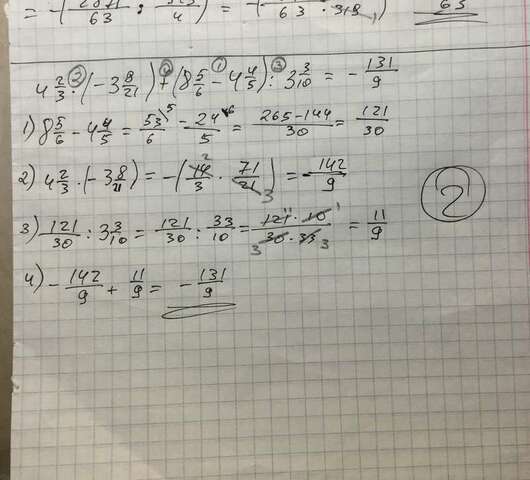 63 4 63 63
4 2/3 · (-3 8/21) + (8 5/6 - 4 4/5) : 3 3/10 = - 131/9
② ④ ① ③
1) 8 5/6 - 4 4/5 = 53/6 - 24/5 = (265-144)/30 = 121/30
2) 4 2/3 · (-3 8/21) = -(14/3 · 71/21) = - 142/9
3) 121/30 : 3 3/10 = 121/30 : 33/10 = (121 · 10)/(30 · 33) = 11/9
4) - 142/9 + 11/9 = - 131/9
2